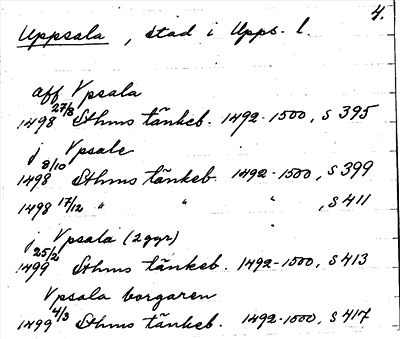 4.
Uppsala, stad i Upps. l.
aff Vpsala
1498 27/8 Sthms tänkeb. 1492-1500, s 395
j Vpsale
1498 8/10 Sthms tänkeb. 1492-1500, s 399
1498 17/12 " " " , s 411
j Vpsala (2ggr)
1499 25/2 Sthms tänkeb. 1492-1500, s 413
Vpsala borgaren
1499 4/3 Sthms tänkeb. 1492-1500, s 417